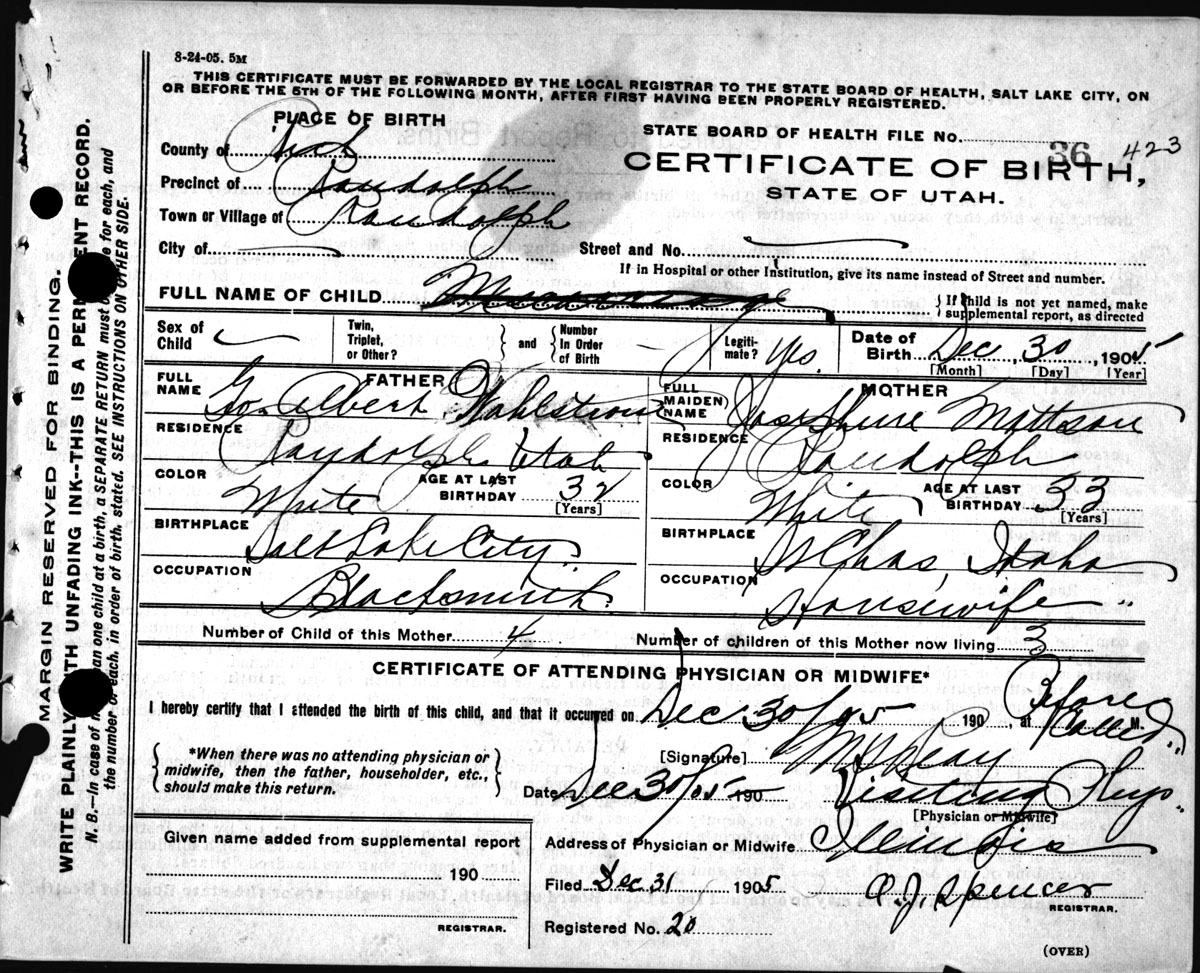 8-24-05. 5M
THIS CERTIFICATE MUST BE FORWARDED BY THE LOCAL REGISTRAR TO THE STATE BOARD OF HEALTH, SALT LAKE CITY, ON
OR BEFORE THE 5TH OF THE FOLLOWING MONTH, AFTER FIRST HAVING BEEN PROPERLY REGISTERED.
PLACE OF BIRTH
STATE BOARD OF HEALTH FILE No.
36 423
County of
CERTIFICATE OF BIRTH,
Precinct of Randolph
STATE OF UTAH.
Town or Village of Randolph
City of
Street and No.
If in Hospital or other Institution, give its name instead of Street and number.
FULL NAME OF CHILD
If child is not yet named, make
supplemental report, as directed
Sex of
Child
Twin,
Triplet,
or Other?
and
Number
In Order
of Birth
Legiti-
mate? Yes.
Date of
Birth Dec, 30, 1905
[Month] [Day] [Year]
FATHER
FULL
NAME Albert Wahlstrom
RESIDENCE
Randolph Utah
COLOR White
AGE AT LAST
BIRTHDAY 32
[Years]
BIRTHPLACE
Salt Lake City
OCCUPATION
Blacksmith
MOTHER
FULL
MAIDEN
NAME Josephine Mattson
RESIDENCE
Randolph
COLOR White
AGE AT LAST
BIRTHDAY 33
[Years]
BIRTHPLACE
St Chas, Idaho
OCCUPATION
Housewife
Number of Child of this Mother 4
Number of children of this Mother now living 3
CERTIFICATE OF ATTENDING PHYSICIAN OR MIDWIFE*
I hereby certify that I attended the birth of this child, and that it occurred on Dec 30/05 190 , at Before Called M.
*When there was no attending physician or
midwife, then the father, householder, etc.,
should make this return.
[Signature]
Date Dec 30/05 190
Visiting Phys.
[Physician or Midwife]
Given name added from supplemental report
190
REGISTRAR.
Address of Physician or Midwife Illinois
Filed Dec. 31 1905
O. J. Spencer
REGISTRAR.
Registered No. 20
(OVER)
MARGIN RESERVED FOR BINDING.
WRITE PLAINLY WITH UNFADING INK--THIS IS A PERMANENT RECORD.
N. B.--In case of more than one child at a birth, a SEPARATE RETURN must be made for each, and
the number of each, in order of birth, stated. SEE INSTRUCTIONS ON OTHER SIDE.